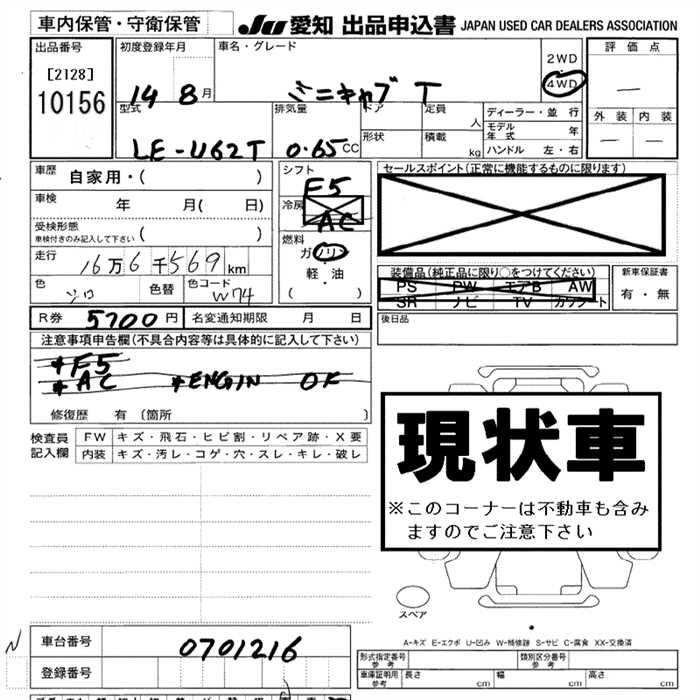 車内保管・守衛保管 JU 愛知 出品申込書 JAPAN USED CAR DEALERS ASSOCIATION
出品番号 初度登録年月 車名・グレード 2WD 評価点
[2128] 14 8月 ミニキャブ T 4WD —
10156 型式 排気量 ドア 定員 人 ディーラー・並行 外装 内装
LE-U62T 0.65CC 形状 積載 kg モデル年式 年 — —
ハンドル 左・右
車歴 自家用・( ) シフト F5 セールスポイント(正常に機能するものに限ります)
車検 年 月( 日) 冷房 AC
受検形態 車検付きのみ記入して下さい ( ) 燃料 ガソリン
走行 16万6千569km 軽・油 装備品(純正品に限り○をつけてください) 新車保証書
色 シロ 色替 色コード W74 ( ) PS PW エアB AW 有・無
SR ナビ TV カワシート
R券 5700円 名変通知期限 月 日 後日品
注意事項申告欄(不具合内容等は具体的に記入して下さい)
*F5
*AC *ENGIN OK
修復歴 有(箇所 )
検査員記入欄 FW キズ・飛石・ヒビ割・リペア跡・X要
内装 キズ・汚レ・コゲ・穴・スレ・キレ・破レ
現状車
※このコーナーは不動車も含み
ますのでご注意下さい
スペア
A-キズ E-エクボ U-凹み W-補修跡 S-サビ C-腐食 XX-交換済
N 車台番号 0701216
形式指定番号 参考 類別区分番号 参考
登録番号 車庫証明用 参考 長さ cm 幅 cm 高さ cm